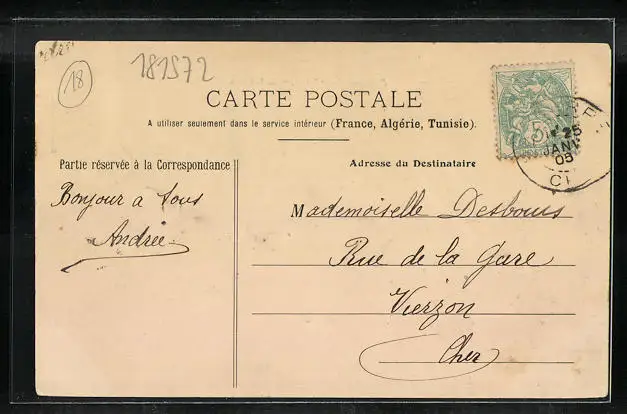 18
181572
CARTE POSTALE
A utiliser seulement dans le service intérieur (France, Algérie, Tunisie).
Partie réservée à la Correspondance
Adresse du Destinataire
Bonjour a tous
Andrée
Mademoiselle Desbouis
Rue de la Gare
Vierzon
Cher
5
25
JANV
05